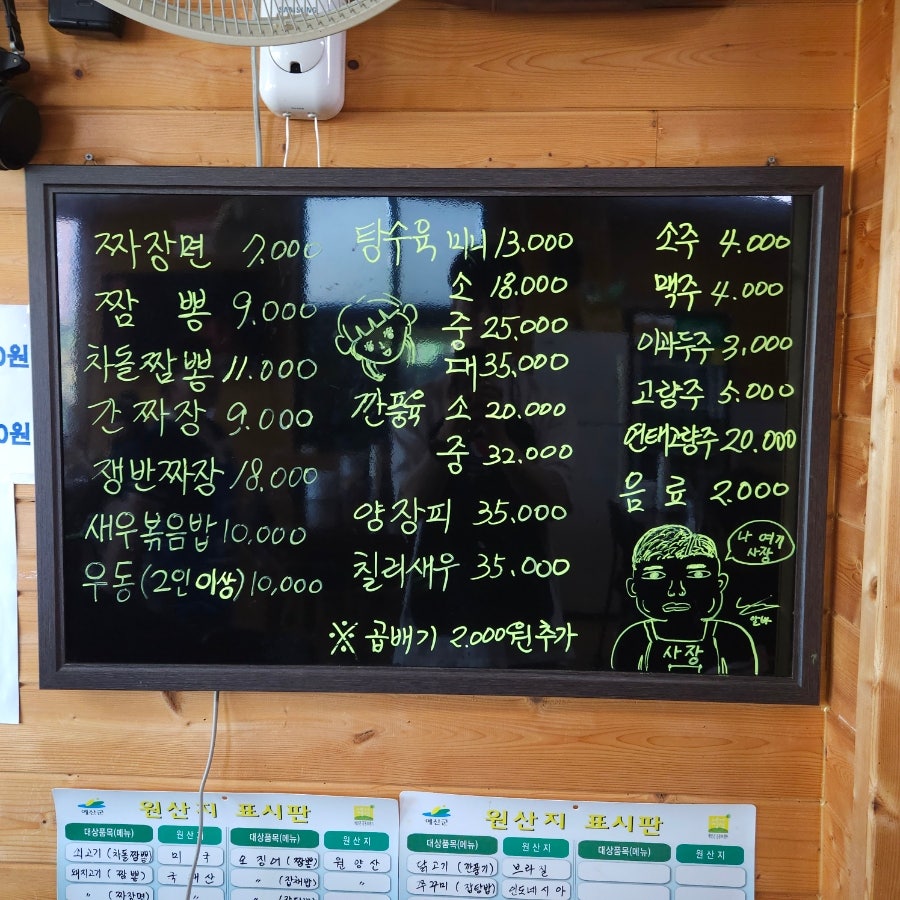 SAMSUNG
짜장면 7,000
짬 뽕 9,000
차돌짬뽕 11.000
간짜장 9.000
쟁반짜장 18,000
새우볶음밥 10,000
우동(2인이상) 10,000
탕수육 미니 13.000
소 18.000
중 25,000
대 35,000
깐풍육 소 20.000
중 32.000
양장피 35.000
칠리새우 35.000
※ 곱배기 2.000원추가
소주 4.000
맥주 4.000
이과두주 3,000
고량주 5.000
연태고량주 20.000
음료 2.000
나 여기
사장
사장
0원
0원
예산군
원산지 표시판
대상품목(메뉴) 원산지 대상품목(메뉴) 원산지
쇠고기 (차돌짬뽕) 미국 오징어 (짬뽕) 원양산
돼지고기 (짬뽕) 국내산 〃 (잡채밥) 〃
〃 (짜장면)
예산군
원산지 표시판
대상품목(메뉴) 원산지 대상품목(메뉴) 원산지
닭고기 (깐풍기) 브라질
쭈꾸미 (잡탕밥) 인도네시아